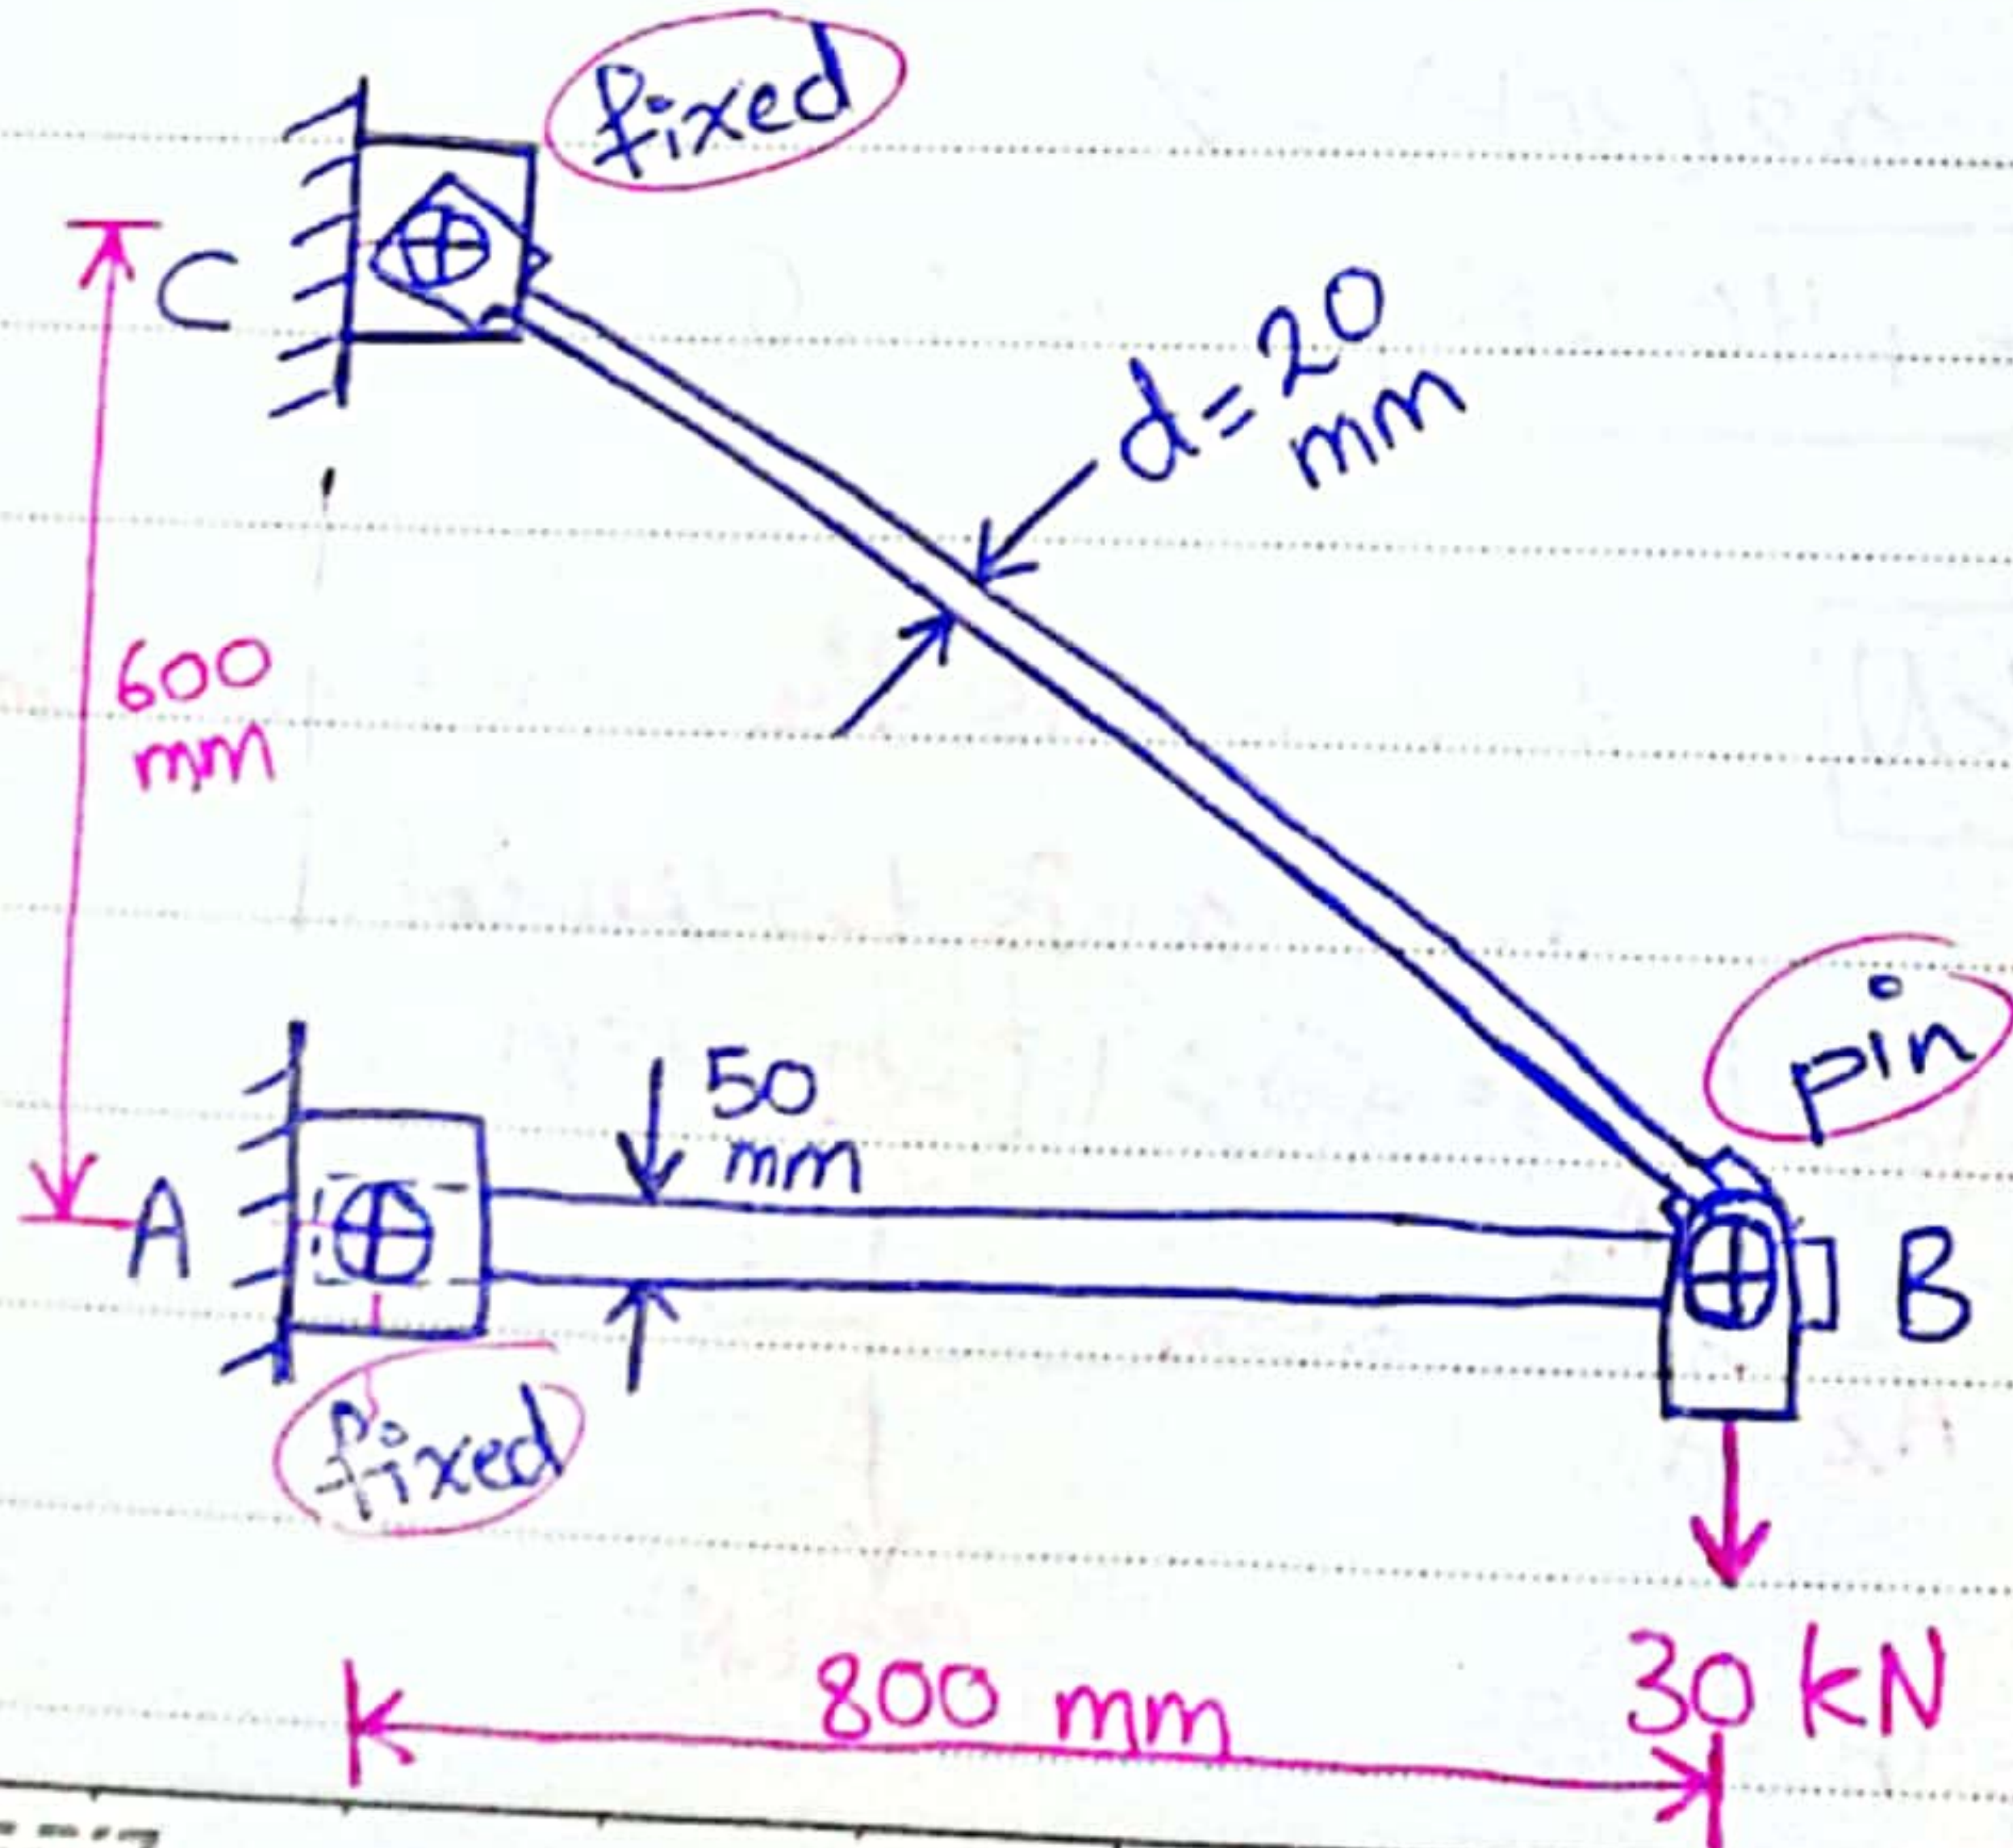 fixed
C
d=20
mm
600
mm
pin
50
mm
A
B
fixed
30 kN
800 mm